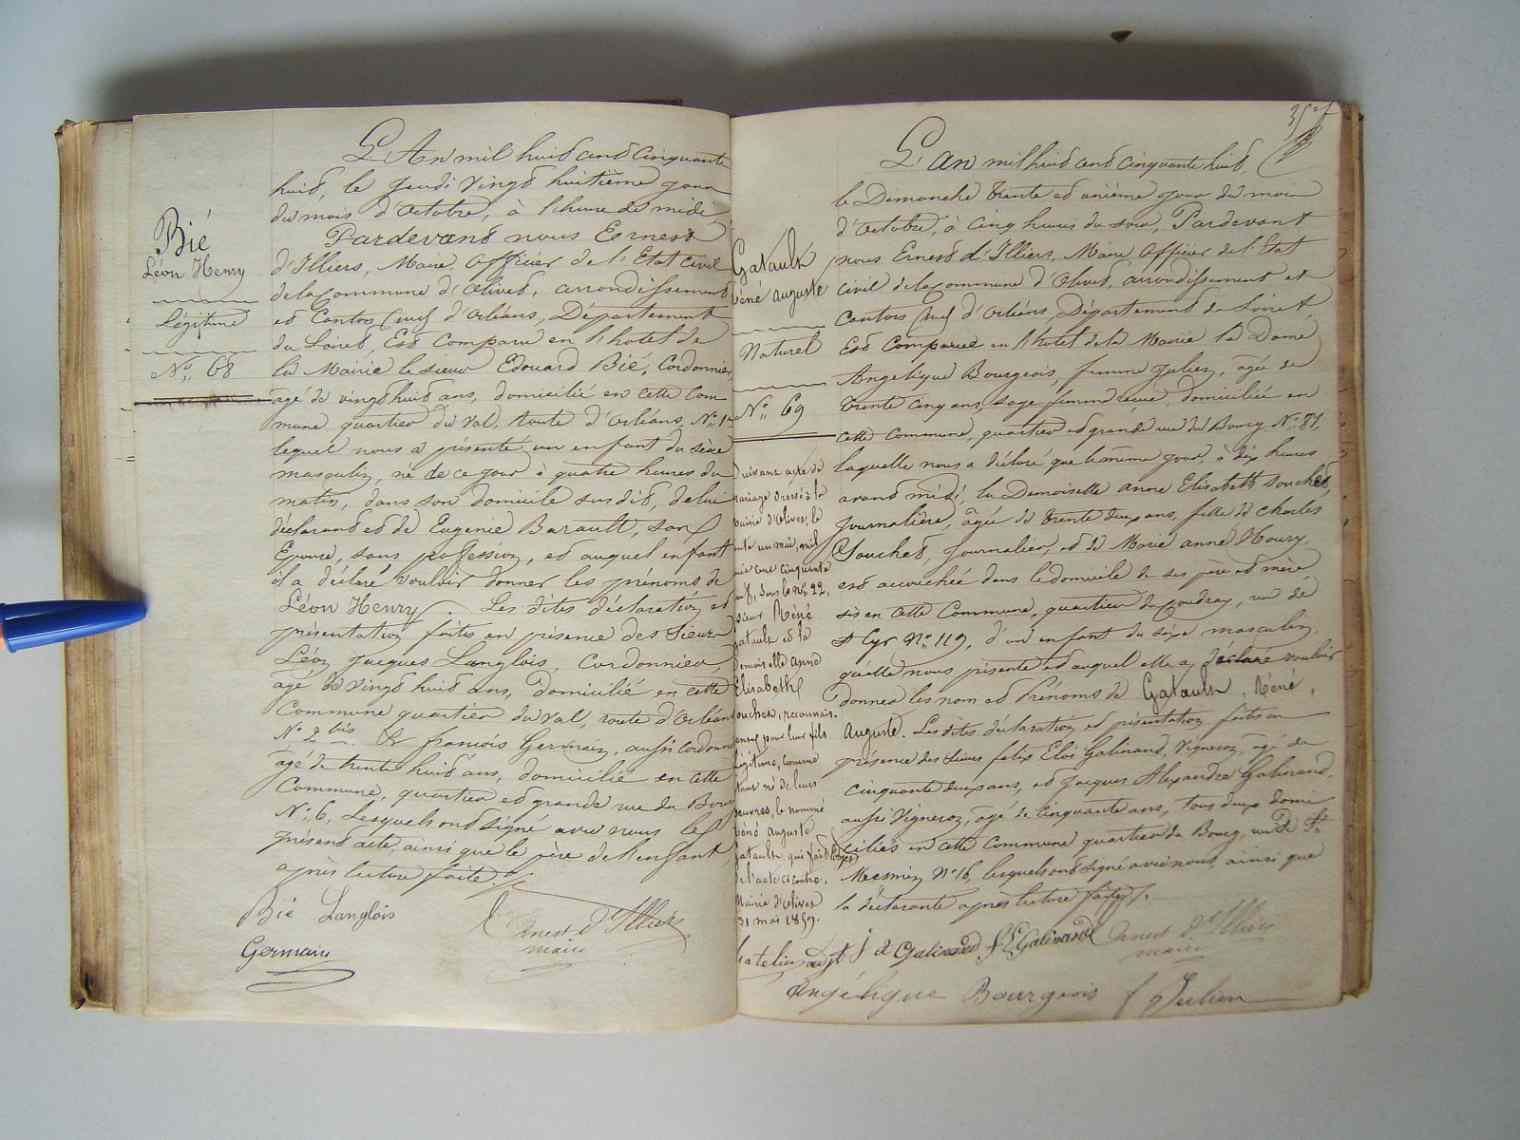 Bié
Léon Henry
Légitime
N° 68
L'An mil huit cent cinquante
huit, le Jeudi vingt huitième jour
du mois d'Octobre, à l'heure de midi,
Pardevant nous Ernest
d'Illiers, Maire, Officier de l'Etat civil
de la Commune d'Olivet, arrondissement
et Canton Sud d'Orléans, Département
du Loiret Est Comparu en l'hotel de
la Mairie le sieur Edouard Bié, Cordonnier,
agé de vingt huit ans, domicilié en cette Com
mune quartier du Val, Route d'Orléans, N°
lequel nous a présenté un enfant du sexe
masculin, né de ce jour à quatre heures du
matin, dans son domicile sus dit, de lui
déclarant et de Eugenie Barault, son
Epouse, sans profession, et auquel enfant
il a déclaré vouloir donner les prénoms de
Léon Henry. Les dites déclaration et
présentation faites en présence des Sieurs
Léon Jacques Langlois, Cordonnier,
agé de vingt huit ans, domicilié en cette
Commune quartier du Val, route d'Orléans
N° 2 bis. Et François Germain, aussi cordonn
agé de trente huit ans, domicilié en cette
Commune, quartier et grande rue du Bourg
N° 6, Lesquels ont signé avec nous le
présent acte, ainsi que le père de l'enfant
après lecture faite
Bié Langlois
Ernest d'Illiers
maire
Germain
35
Gatault
Réné Auguste
Naturel
N° 69
Suivant acte de
mariage dressé à la
mairie d'Olivet, le
trente un mai, mil
huit cent cinquante
neuf, sous le N° 22,
le sieur Réné
Gatault et la
Demoiselle Anne
Elisabeth
Souchet, reconnais.
pour leur fils
légitime, comme
étant né de leurs
œuvres, le nommé
Réné Auguste
Gatault, qui fait l'objet
de l'acte ci contre.
Mairie d'Olivet
31 mai 1859.
L'an mil huit cent cinquante huit,
le Dimanche trente et unième jour du mois
d'Octobre, à cinq heures du soir, Pardevant
nous Ernest d'Illiers, Maire, Officier de l'Etat
civil de la Commune d'Olivet, arrondissement et
Canton Sud d'Orléans, Département du Loiret,
Est Comparue en l'hotel de la Mairie la Dame
Angelique Bourgeois, femme Julien, agée de
trente cinq ans, sage femme reçue, domiciliée en
cette Commune, quartier et grande rue du Bourg N° 81,
laquelle nous a déclaré que le même jour, à dix heures
avant midi, la Demoiselle Anne Elisabeth Souchet,
Journalière, âgée de trente deux ans, fille de Charles
Souchet, Journalier, et de Marie Anne Houry,
est accouchée dans le domicile de ses père et mère
sis en cette Commune, quartier du Coudray, rue de
St Cyr N° 119, d'un enfant du sexe masculin,
qu'elle nous présente et auquel elle a déclaré vouloir
donner les nom et Prénoms de Gatault, Réné,
Auguste. Les dites déclaration et présentation faites en
présence des Sieurs Felix Eloi Galinand, Vigneron, agé de
cinquante deux ans, et Jacques Alexandre Galinand,
aussi Vigneron, agé de Cinquante ans, tous deux domi
ciliés en cette Commune quartier du Bourg, rue de St
Mesmin N° 16, lesquels ont signé avec nous, ainsi que
la déclarante après lecture faite.
J A Galinand F E Galinand Ernest d'Illiers
maire
Angélique Bourgeois f Julien